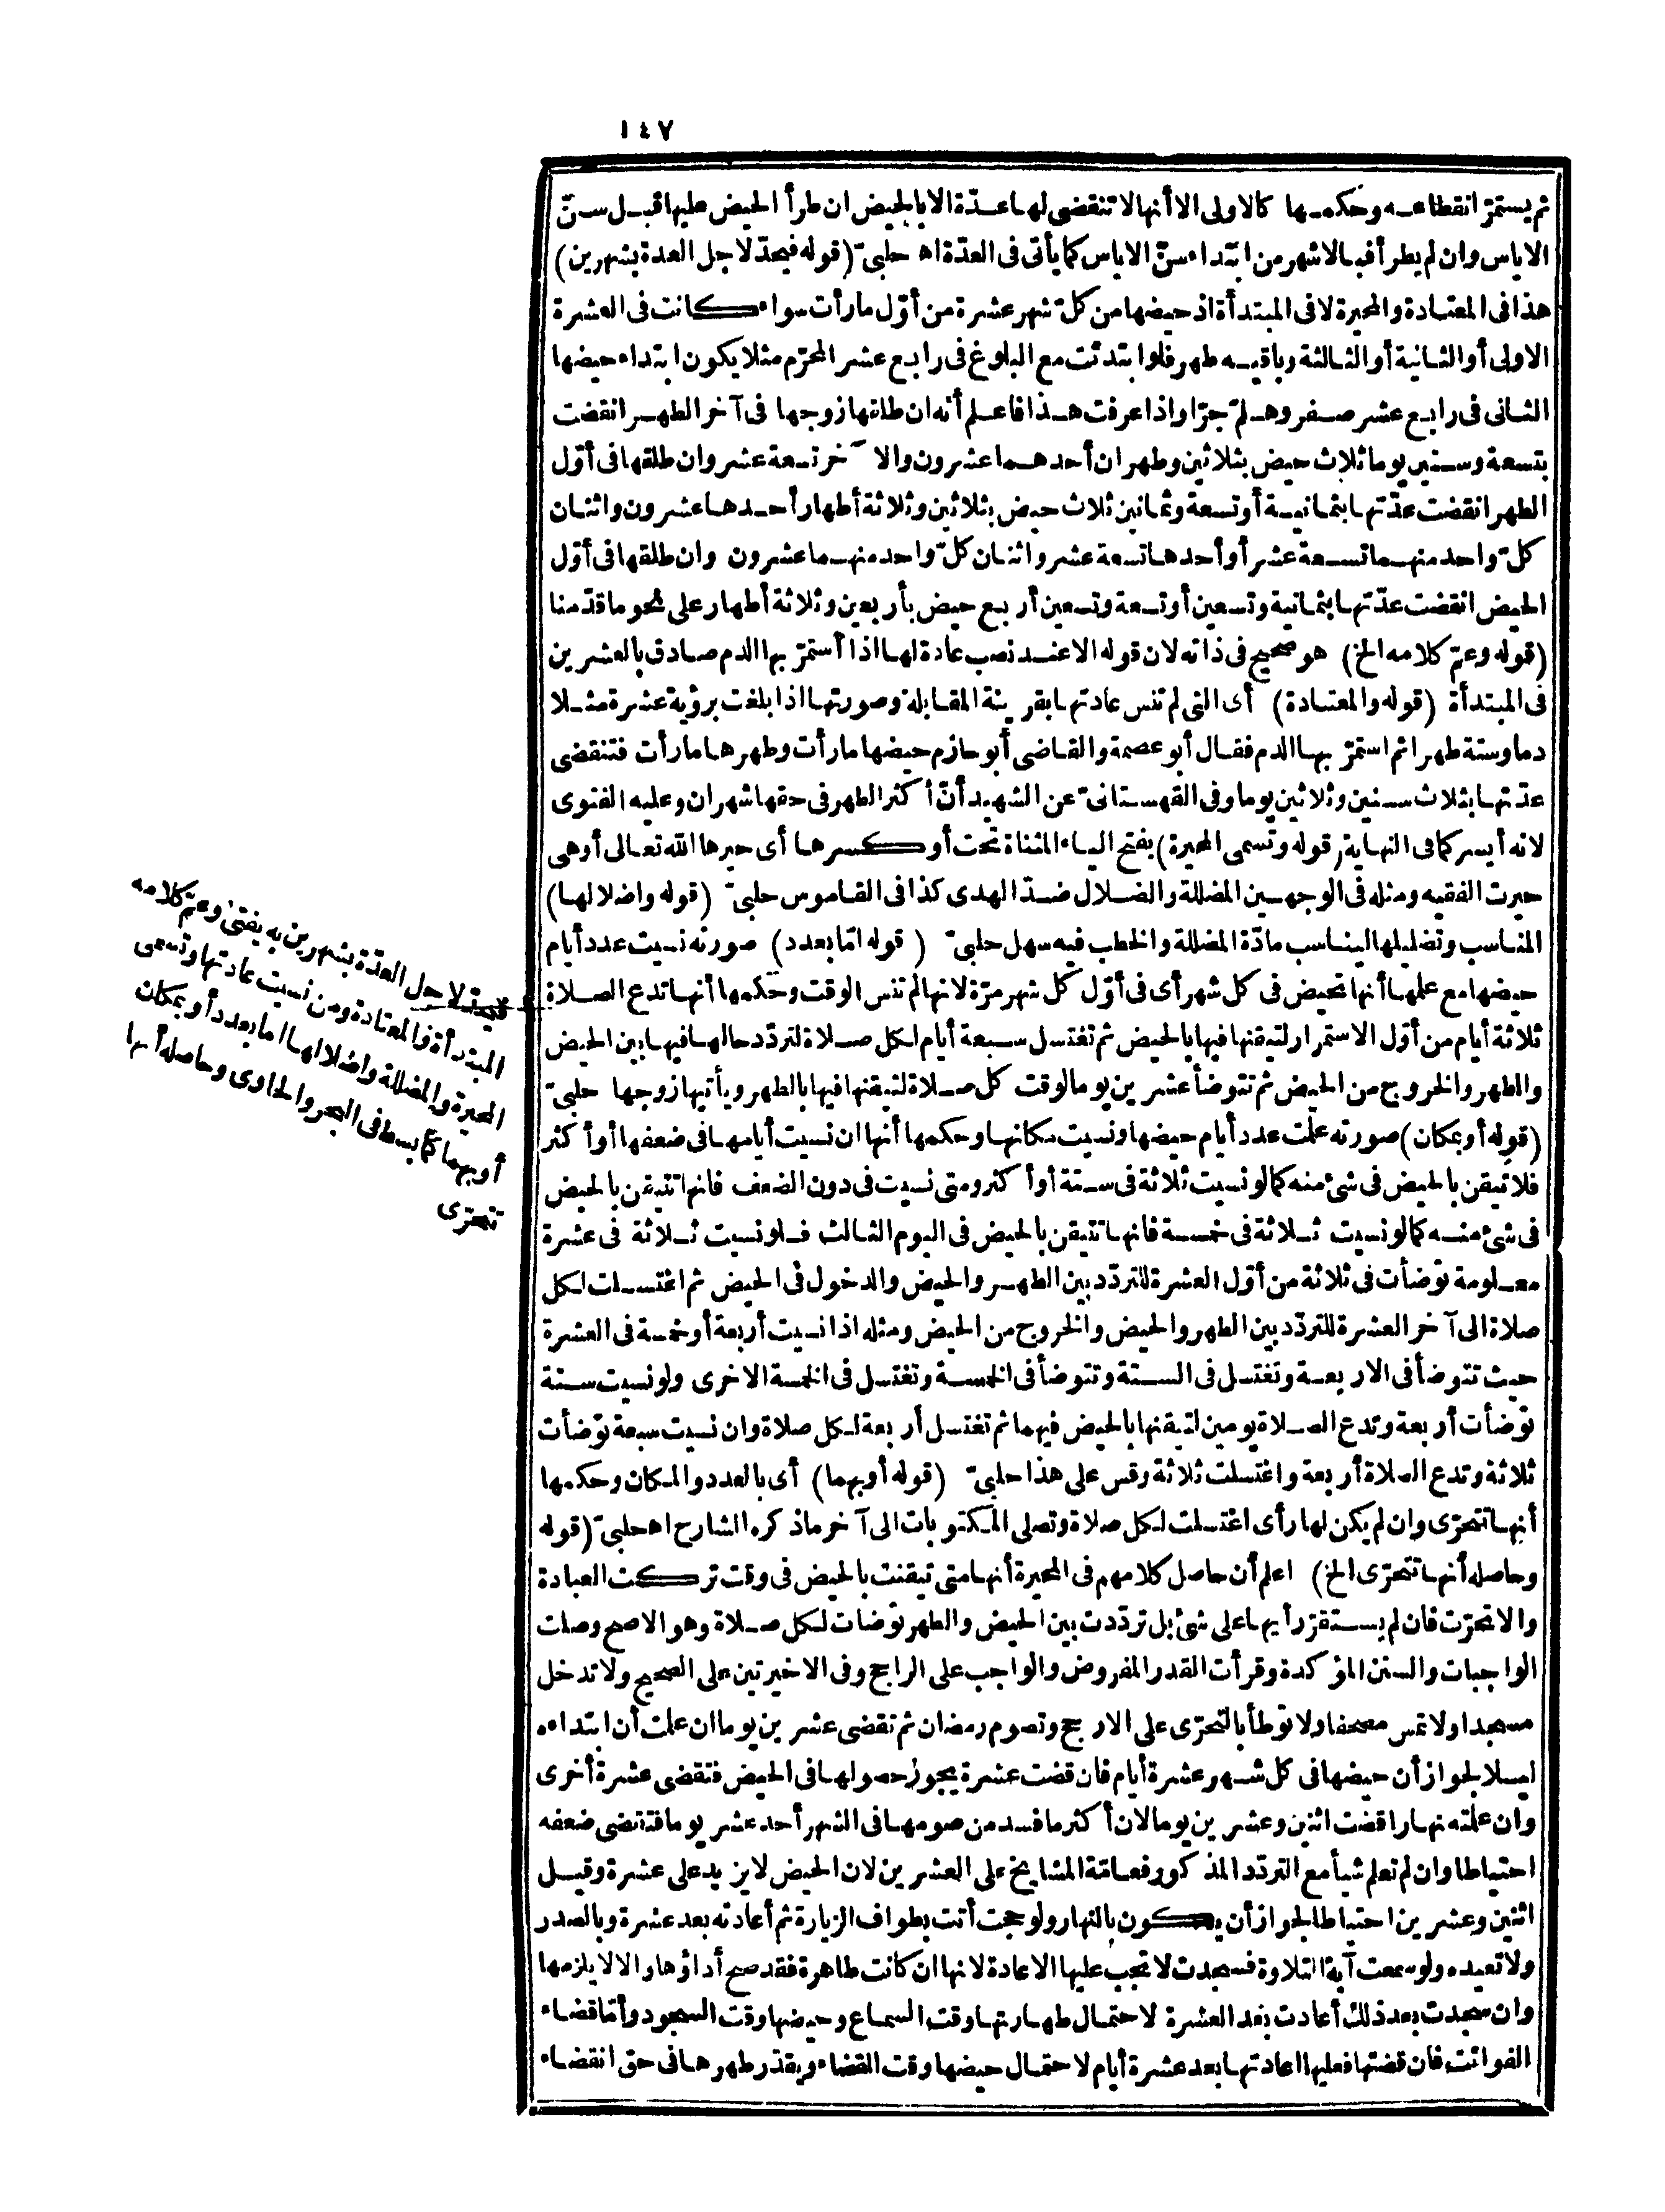 ١٤٧
ثم يستمرّ انقطاعه وحكمها كالاولى الا أنها لا تنقضى لها عدّة الا بالحيض ان طرأ الحيض عليها قبل سنّ
الاياس وان لم يطرأ فبالاشهر من ابتداء سنّ الاياس كما يأتى فى العدّة اه حلبىّ (قوله فيحدّ لاجل العدة بشهرين)
هذا فى المعتادة والمحيرة لا فى المبتدأة اذ حيضها من كلّ شهر عشرة من أوّل ما رأت سواء كانت فى العشرة
الاولى أو الثانية أو الثالثة وباقيه طهر فلو ابتدئت مع البلوغ فى رابع عشر المحرّم مثلا يكون ابتداء حيضها
الثانى فى رابع عشر صفر وهلمّ جرّا واذا عرفت هذا فاعلم أنه ان طلقها زوجها فى آخر الطهر انقضت
بتسعة وستين يوما ثلاث حيض بثلاثين وطهران أحدهما عشرون والآخر تسعة عشر وان طلقها فى أوّل
الطهر انقضت عدّتها بثمانية أو تسعة وثمانين ثلاث حيض بثلاثين وثلاثة أطهار أحدها عشرون واثنان
كلّ واحد منهما تسعة عشر أو أحدها تسعة عشر واثنان كلّ واحد منهما عشرون وان طلقها فى أوّل
الحيض انقضت عدّتها بثمانية وتسعين أو تسعة وتسعين أربع حيض بأربعين وثلاثة أطهار على نحو ما قدّمنا
(قوله وعمّ كلامه الخ) هو صحيح فى ذاته لان قوله الا عند نصب عادة لها اذا أستمرّ بها الدم صادق بالعشرين
فى المبتدأة (قوله والمعتادة) أى التى لم تنس عادتها بقرينة المقابلة وصورتها اذا بلغت برؤية عشرة مثلا
دما وستة طهرا ثم استمرّ بها الدم فقال أبو عصمة والقاضى أبو حازم حيضها ما رأت وطهرها ما رأت فتنقضى
عدّتها بثلاث سنين وثلاثين يوما وفى القهستانىّ عن الشهيد أنّ أكثر الطهر فى حقها شهران وعليه الفتوى
لانه أيسر كما فى النهاية (قوله وتسمى المحيرة) بفتح الياء المثناة تحت أو كسرها أى حيرها الله تعالى أو هى
حيرت الفقيه ومثله فى الوجهين المضللة والضلال ضدّ الهدى كذا فى القاموس حلبىّ (قوله واضلالها)
المناسب وتضليلها ليناسب مادّة المضللة والخطب فيه سهل حلبىّ (قوله امّا بعدد) صورته نسيت عدد أيام
حيضها مع علمها أنها تحيض فى كل شهر أى فى أوّل كل شهر مرّة لانها لم تنس الوقت وحكمها أنها تدع الصلاة
ثلاثة أيام من أوّل الاستمرار لتيقنها فيها بالحيض ثم تغتسل سبعة أيام لكل صلاة لتردّد حالها فيها بين الحيض
والطهر والخروج من الحيض ثم تتوضأ عشرين يوما لوقت كل صلاة لتيقنها فيها بالطهر ويأتيها زوجها حلبىّ
(قوله أو بمكان) صورته علمت عدد أيام حيضها ونسيت مكانها وحكمها أنها ان نسيت أيامها فى ضعفها أو أكثر
فلا تيقن بالحيض فى شئ منه كما لو نسيت ثلاثة فى ستة أو أكثر ومتى نسيت فى دون الضعف فانها تتيقن بالحيض
فى شئ منه كما لو نسيت ثلاثة فى خمسة فانها تتيقن بالحيض فى اليوم الثالث فلو نسيت ثلاثة فى عشرة
معلومة توّضأت فى ثلاثة من أوّل العشرة للتردّد بين الطهر والحيض والدخول فى الحيض ثم اغتسلت لكل
صلاة الى آخر العشرة للتردّد بين الطهر والحيض والخروج من الحيض ومثله اذا نسيت أربعة أو خمسة فى العشرة
حيث تتوضأ فى الاربعة وتغتسل فى الستة وتتوضأ فى الخمسة وتغتسل فى الخمسة الاخرى ولو نسيت ستة
توّضأت أربعة وتدع الصلاة يومين لتيقنها بالحيض فيهما ثم تغتسل أربعة لكل صلاة وان نسيت سبعة توّضأت
ثلاثة وتدع الصلاة أربعة واغتسلت ثلاثة وقس على هذا حلبىّ (قوله أو بهما) أى بالعدد والمكان وحكمها
أنها تتحرّى وان لم يكن لها رأى اغتسلت لكل صلاة وتصلى المكتوبات الى آخر ما ذكره الشارح اه حلبىّ (قوله
وحاصله أنها تتحرّى الخ) اعلم أن حاصل كلامهم فى المحيرة أنها متى تيقنت بالحيض فى وقت تركت العبادة
والا تحرّت فان لم يستقرّ رأيها على شئ بل تردّدت بين الحيض والطهر توّضأت لكل صلاة وهو الاصح وصلت
الواجبات والسنن المؤكدة وقرأت القدر المفروض والواجب على الراجح وفى الاخيرتين على الصحيح ولا تدخل
مسجدا ولا تمس مصحفا ولا توطأ بالتحرّى على الارجح وتصوم رمضان ثم تقضى عشرين يوما ان علمت أن ابتداءه
ليلا لجواز أن حيضها فى كل شهر عشرة أيام فان قضت عشرة يجوز حصولها فى الحيض فتقضى عشرة أخرى
وان علمته نهارا قضت اثنين وعشرين يوما لان أكثر ما فسد من صومها فى الشهر أحد عشر يوما فتقضى ضعفه
احتياطا وان لم تعلم شيأ مع التردّد المذكور فعامّة المشايخ على العشرين لان الحيض لا يزيد على عشرة وقيل
اثنين وعشرين احتياطا لجواز أن يكون بالنهار ولو حجت أتت بطواف الزيارة ثم أعادته بعد عشرة وبالصدر
ولا تعيده ولو سمعت آية التلاوة فسجدت لا تجب عليها الاعادة لانها ان كانت طاهرة فقد صح أداؤها والا لا يلزمها
وان سجدت بعد ذلك أعادت بعد العشرة لاحتمال طهارتها وقت السماع وحيضها وقت السجود وأمّا قضاء
الفوائت فان قضتها فعليها اعادتها بعد عشرة أيام لاحتمال حيضها وقت القضاء ويقدّر طهرها فى حق انقضاء
فيحدّ لاجل العدّة بشهرين به يفتى وعمّ كلامه
المبتدأة والمعتادة ومن نسيت عادتها وتسمى
المحيرة والمضللة واضلالها اما بعدد أو بمكان
أو بهما كما بسط فى البحر والحاوى وحاصله أنها
تتحرّى